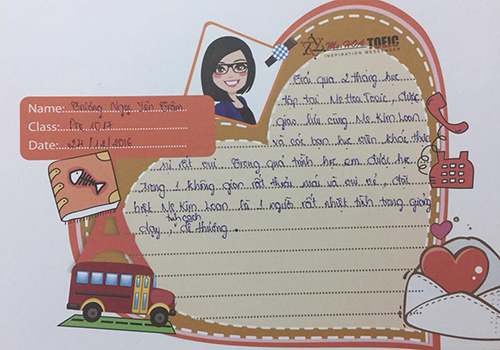 Ms HOA TOEIC
INSPIRATION MESSENGER
Name: Dương Ngọc Yến
Class: Pre
Date: 24/12/2016
Trải qua 2 tháng học
tập tại Ms Hoa Toeic, được
giao lưu cùng Ms Kim Loan
và các bạn học viên khác thực
sự rất vui. Trong quá trình học em được học
trong 1 không gian rất thoải mái và vui vẻ, đặc
biệt Ms Kim Loan là 1 người rất nhiệt tình trong giảng
tính cách
dạy, dễ thương.